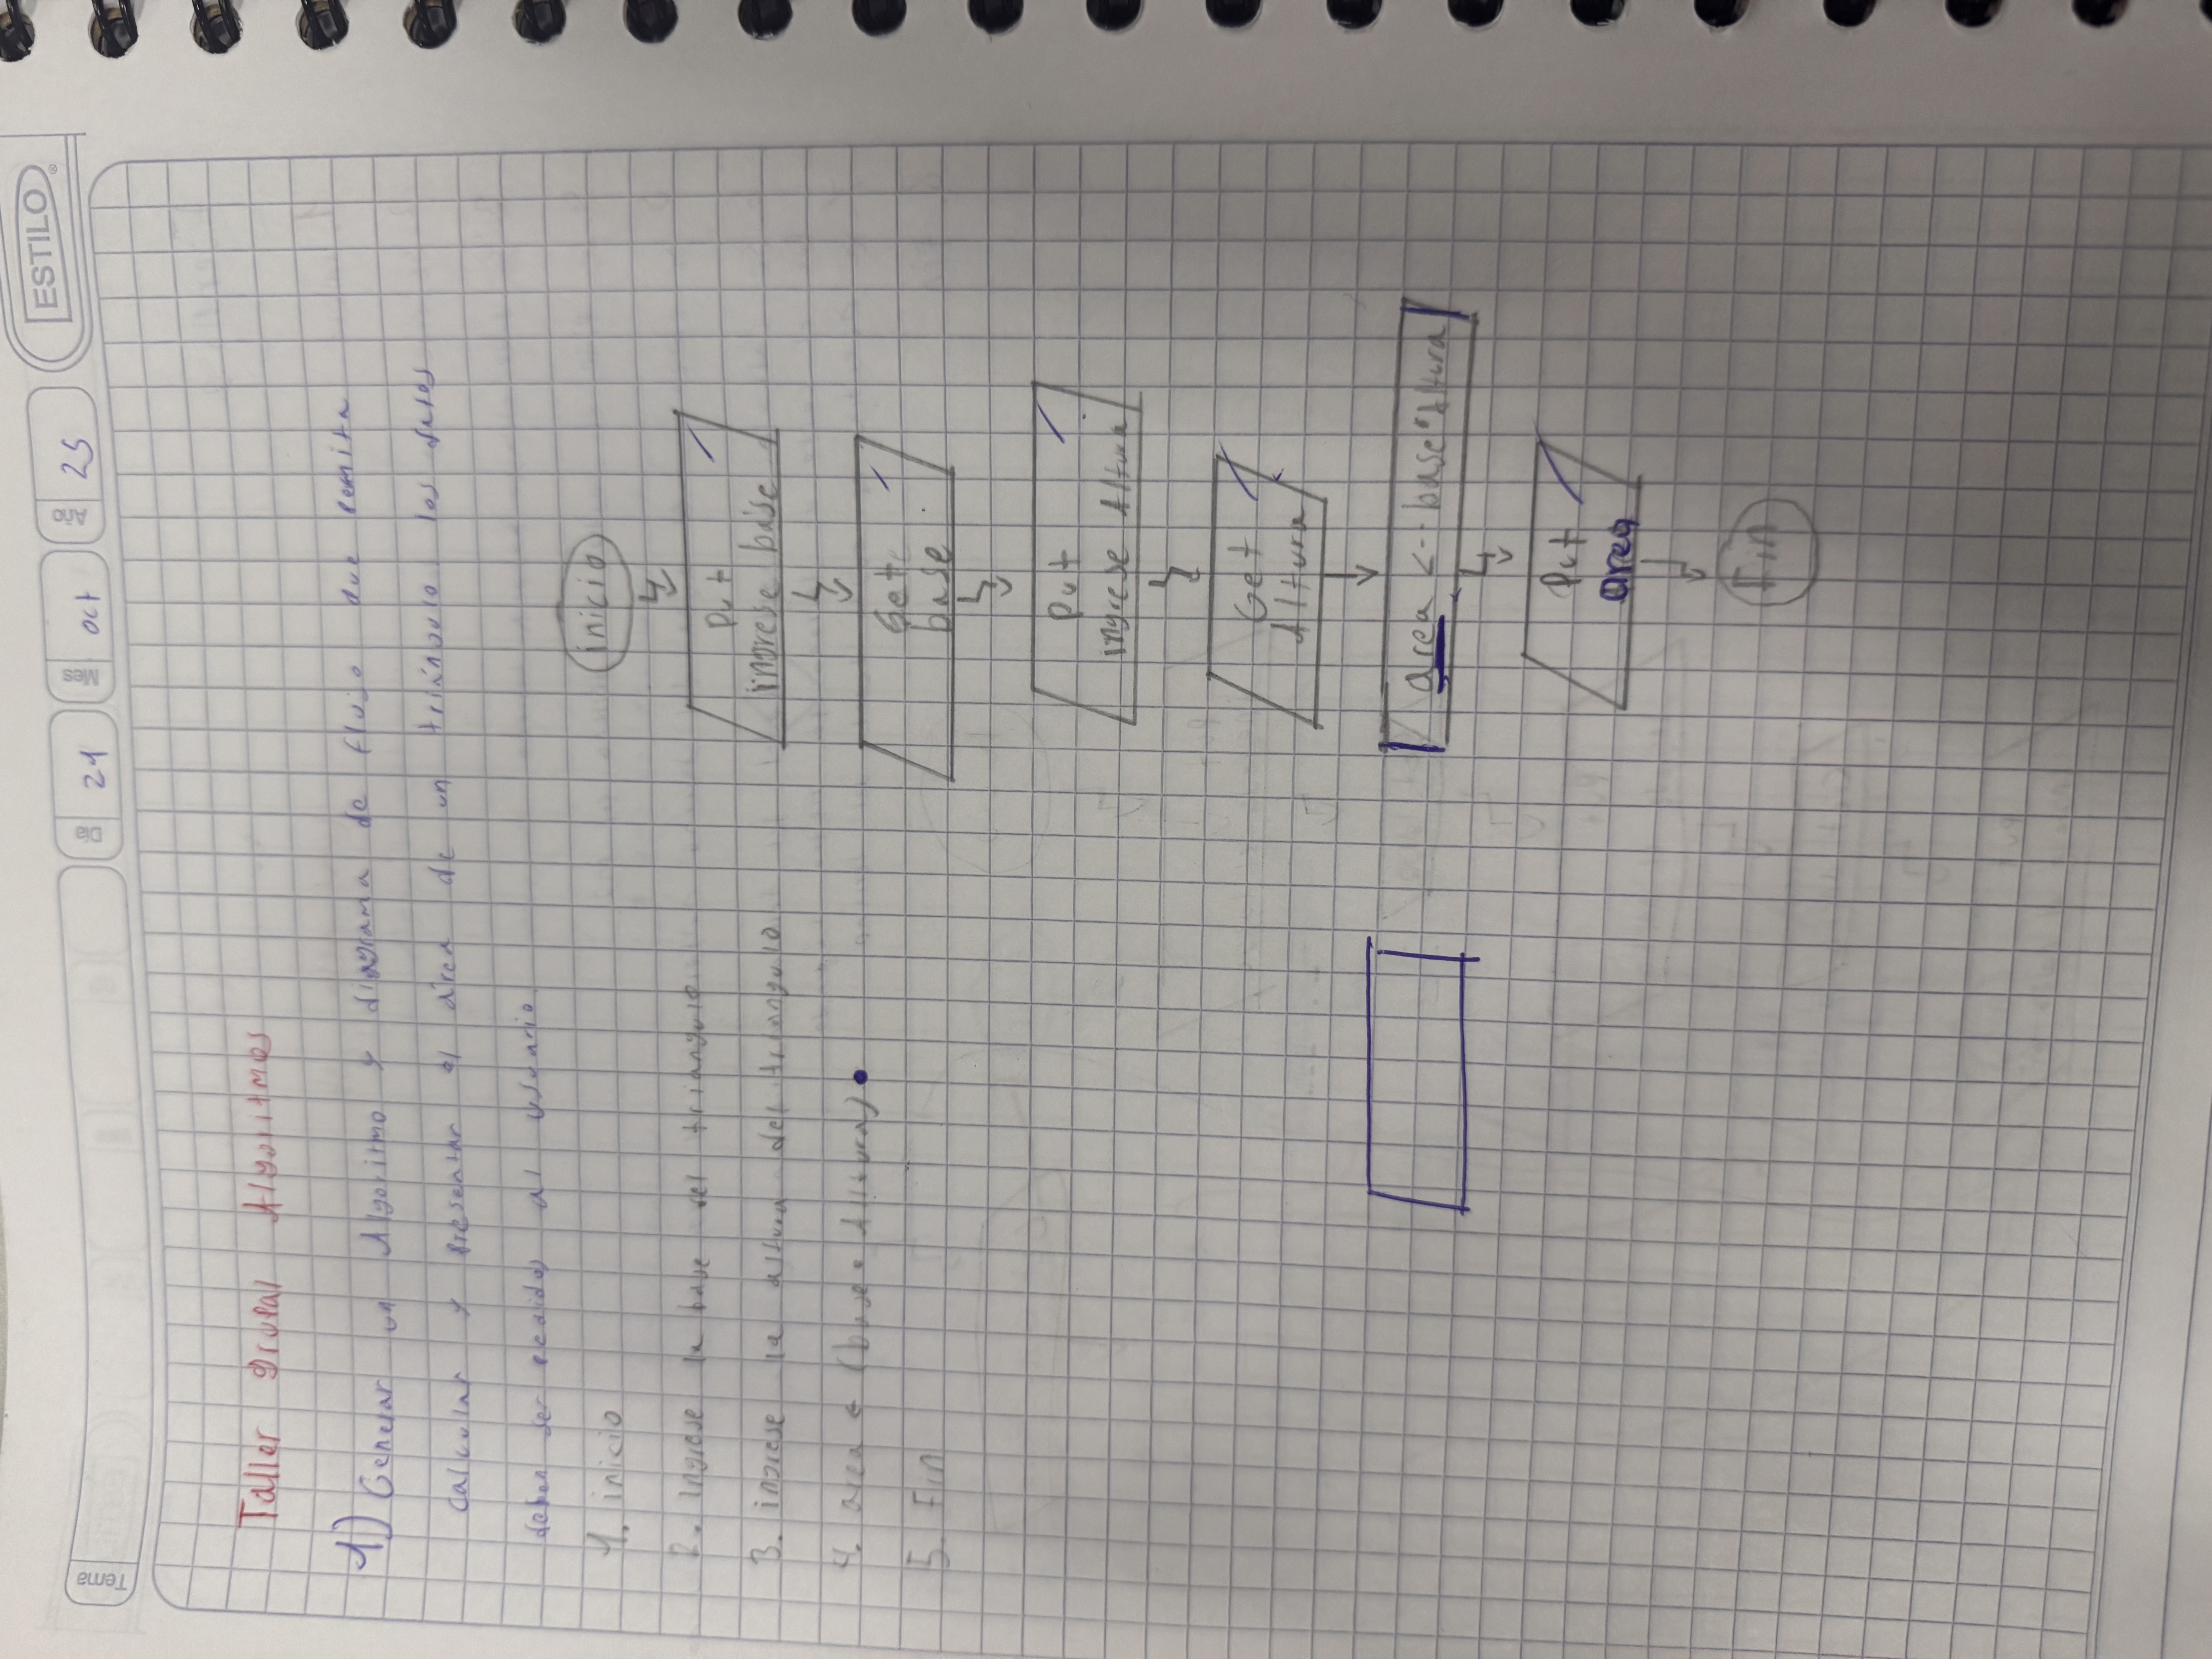 ESTILO
Tema
Día 21 Mes oct Año 25
Taller grupal Algoritmos
1) Generar un Algoritmo y diagrama de flujo que permita
calcular y presentar el área de un triángulo los datos
deben ser pedidos al usuario
1. inicio
2. ingrese la base del triangulo
3. ingrese la altura del triangulo
4. area ← (base * Altura)
5. Fin
inicio
Put
ingrese base
Get
base
Put
ingrese Altura
Get
Altura
area <-- base * Altura
Put
area
Fin